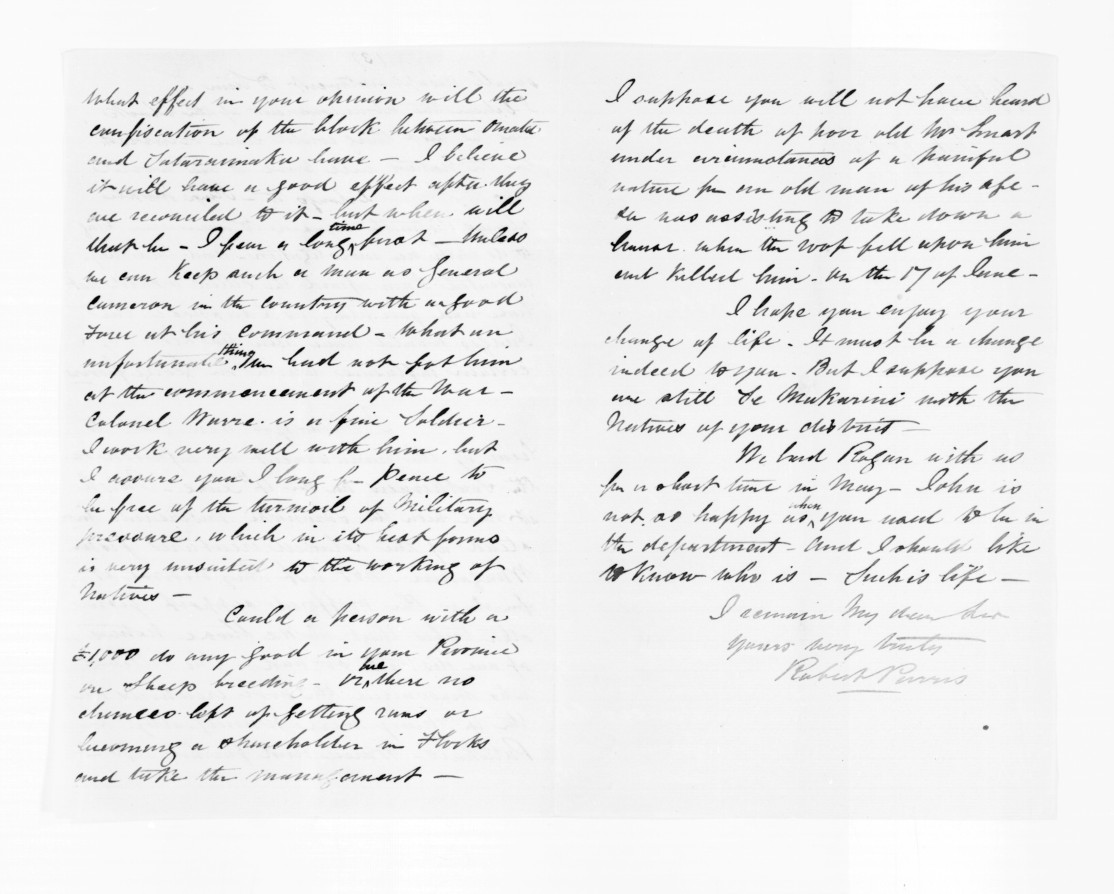 What effect in your opinion will the
confiscation of the block between Omata
and Tataraimaka have - I believe
it will have a good effect after they
are reconciled to it - but when will
that be - I fear a long time first - Unless
we can keep such a man as General
Cameron in the country with a good
Force at his command - What an
unfortunate thing we had not got him
at the commencement of the War -
Colonel Warre is a fine Soldier -
I work very well with him, but
I assure you I long for Peace to
be free of the turmoil of Military
pressure, which in its best forms
is very unsuited to the working of
Natives -
Could a person with a
£1,000 do any good in your Province
on Sheep breeding - or are there no
chances left of getting runs or
becoming a shareholder in Flocks
and take the management -
I suppose you will not have heard
of the death of poor old Mr Smart
under circumstances of a painful
nature for an old man of his age -
he was assisting to take down a
house when the roof fell upon him
and killed him - on the 17 of June -
I hope you enjoy your
change of life - It must be a change
indeed to you - But I suppose you
are still Te Makarini with the
Natives of your district -
We had Rogan with us
for a short time in May - John is
not as happy as when you used to be in
the department - And I should like
to know who is - Such is life -
I remain My dear Sir
Yours very truly
Robert Parris